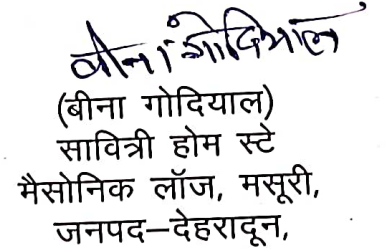 बीना गोदियाल
(बीना गोदियाल)
सावित्री होम स्टे
मैसोनिक लॉज, मसूरी,
जनपद–देहरादून,